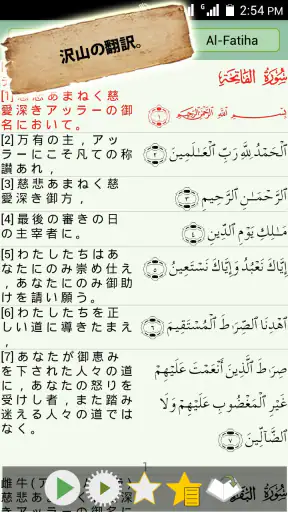 G 2:54 PM
沢山の翻訳。
Al-Fatiha
سُورَةُ الفَاتِحَة
[1] 慈悲あまねく慈
愛深きアッラーの御
名において。
بِسْمِ ٱللَّهِ ٱلرَّحْمَٰنِ ٱلرَّحِيمِ ١
[2] 万有の主，アッ
ラーにこそ凡ての称
讃あれ，
ٱلْحَمْدُ لِلَّهِ رَبِّ ٱلْعَٰلَمِينَ ٢
[3] 慈悲あまねく慈
愛深き御方，
ٱلرَّحْمَٰنِ ٱلرَّحِيمِ ٣
[4] 最後の審きの日
の主宰者に。
مَٰلِكِ يَوْمِ ٱلدِّينِ ٤
[5] わたしたちはあ
なたにのみ崇め仕え
，あなたにのみ御助
けを請い願う。
إِيَّاكَ نَعْبُدُ وَإِيَّاكَ نَسْتَعِينُ ٥
[6] わたしたちを正
しい道に導きたまえ
，
ٱهْدِنَا ٱلصِّرَٰطَ ٱلْمُسْتَقِيمَ ٦
[7] あなたが御恵み
を下された人々の道
に，あなたの怒りを
受けし者，また踏み
迷える人々の道では
なく。
صِرَٰطَ ٱلَّذِينَ أَنْعَمْتَ عَلَيْهِمْ
غَيْرِ ٱلْمَغْضُوبِ عَلَيْهِمْ وَلَا
ٱلضَّآلِّينَ ٧
1
雌牛(ア
慈悲あ